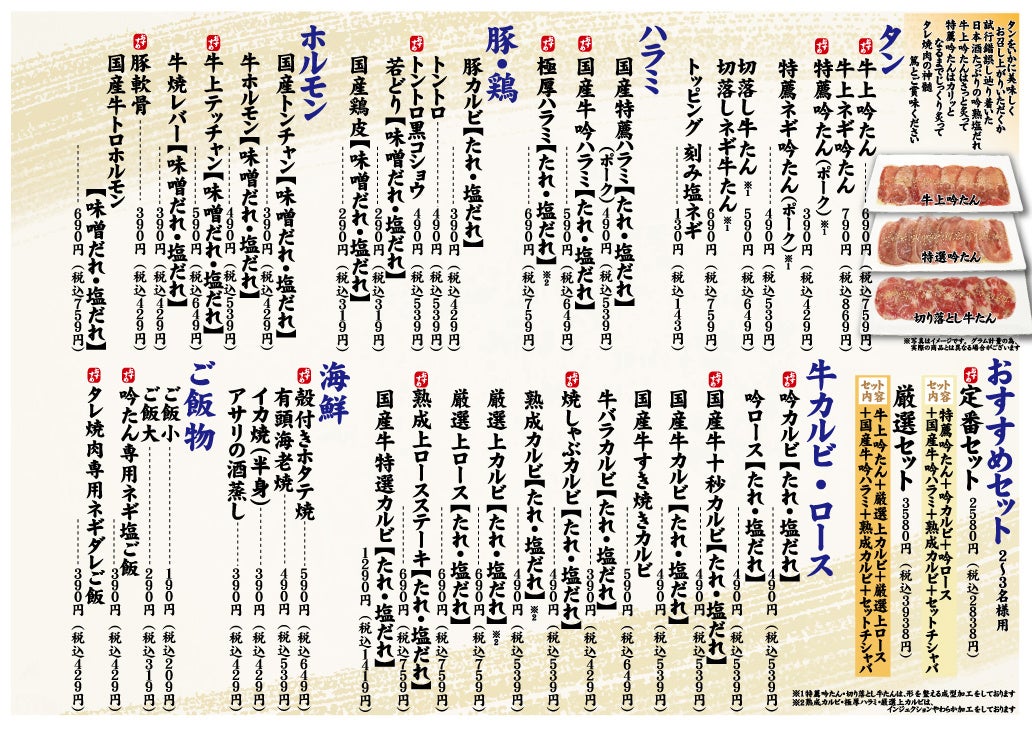 タンをいかに美味しく
お召し上がりいただくか
試行錯誤し辿り着いた
日本酒たっぷりの吟熟塩だれ
牛上吟たんはさっと炙って
特薦吟たんはカリッと
なるまでじっくり炙って
タレ焼肉の神髄
篤とご賞味ください
牛上吟たん
特選吟たん
切り落とし牛たん
※写真はイメージです。グラム計量の為、
実際の商品とは異なる場合がございます
タン
おすすめ 牛上吟たん 690円(税込759円)
牛上ネギ吟たん 790円(税込869円)
おすすめ 特薦吟たん(ポーク)※1 390円(税込429円)
特薦ネギ吟たん(ポーク)※1 490円(税込539円)
切落し牛たん※1 590円(税込649円)
切落しネギ牛たん※1 690円(税込759円)
トッピング 刻み塩ネギ 130円(税込143円)
ハラミ
国産特薦ハラミ【たれ・塩だれ】
(ポーク) 490円(税込539円)
おすすめ 国産牛吟ハラミ【たれ・塩だれ】
590円(税込649円)
おすすめ 極厚ハラミ【たれ・塩だれ】※2
690円(税込759円)
豚・鶏
豚カルビ【たれ・塩だれ】
390円(税込429円)
トントロ 490円(税込539円)
おすすめ トントロ黒コショウ 490円(税込539円)
若どり【味噌だれ・塩だれ】
290円(税込319円)
国産鶏皮【味噌だれ・塩だれ】
290円(税込319円)
ホルモン
国産トンチャン【味噌だれ・塩だれ】
390円(税込429円)
牛ホルモン【味噌だれ・塩だれ】
490円(税込539円)
おすすめ 牛上テッチャン【味噌だれ・塩だれ】
590円(税込649円)
牛焼レバー【味噌だれ・塩だれ】
390円(税込429円)
おすすめ 豚軟骨 390円(税込429円)
国産牛トロホルモン
【味噌だれ・塩だれ】
690円(税込759円)
おすすめセット 2〜3名様用
おすすめ 定番セット 2580円(税込2838円)
セット内容 特薦吟たん+吟カルビ+吟ロース
+国産牛吟ハラミ+熟成カルビ+セットチシャバ
厳選セット 3580円(税込3938円)
セット内容 牛上吟たん+厳選上カルビ+厳選上ロース
+国産牛吟ハラミ+熟成カルビ+セットチシャバ
牛カルビ・ロース
おすすめ 吟カルビ【たれ・塩だれ】
490円(税込539円)
吟ロース【たれ・塩だれ】
490円(税込539円)
おすすめ 国産牛十秒カルビ【たれ・塩だれ】
490円(税込539円)
国産牛カルビ【たれ・塩だれ】
490円(税込539円)
国産牛すき焼きカルビ
590円(税込649円)
牛バラカルビ【たれ・塩だれ】
490円(税込539円)
おすすめ 焼しゃぶカルビ【たれ・塩だれ】
390円(税込429円)
熟成カルビ【たれ・塩だれ】※2
490円(税込539円)
おすすめ 厳選上カルビ【たれ・塩だれ】※2
690円(税込759円)
厳選上ロース【たれ・塩だれ】
690円(税込759円)
おすすめ 熟成上ロースステーキ【たれ・塩だれ】
690円(税込759円)
国産牛特選カルビ【たれ・塩だれ】
1290円(税込1419円)
海鮮
おすすめ 殻付きホタテ焼 590円(税込649円)
有頭海老焼 490円(税込539円)
イカ焼(半身) 390円(税込429円)
アサリの酒蒸し 390円(税込429円)
ご飯物
ご飯小 190円(税込209円)
ご飯大 290円(税込319円)
おすすめ 吟たん専用ネギ塩ご飯
390円(税込429円)
おすすめ タレ焼肉専用ネギダレご飯
390円(税込429円)
※1特薦吟たん・切り落とし牛たんは、形を整える成型加工をしております
※2熟成カルビ・極厚ハラミ・厳選上カルビは、
インジェクションやわらか加工をしております